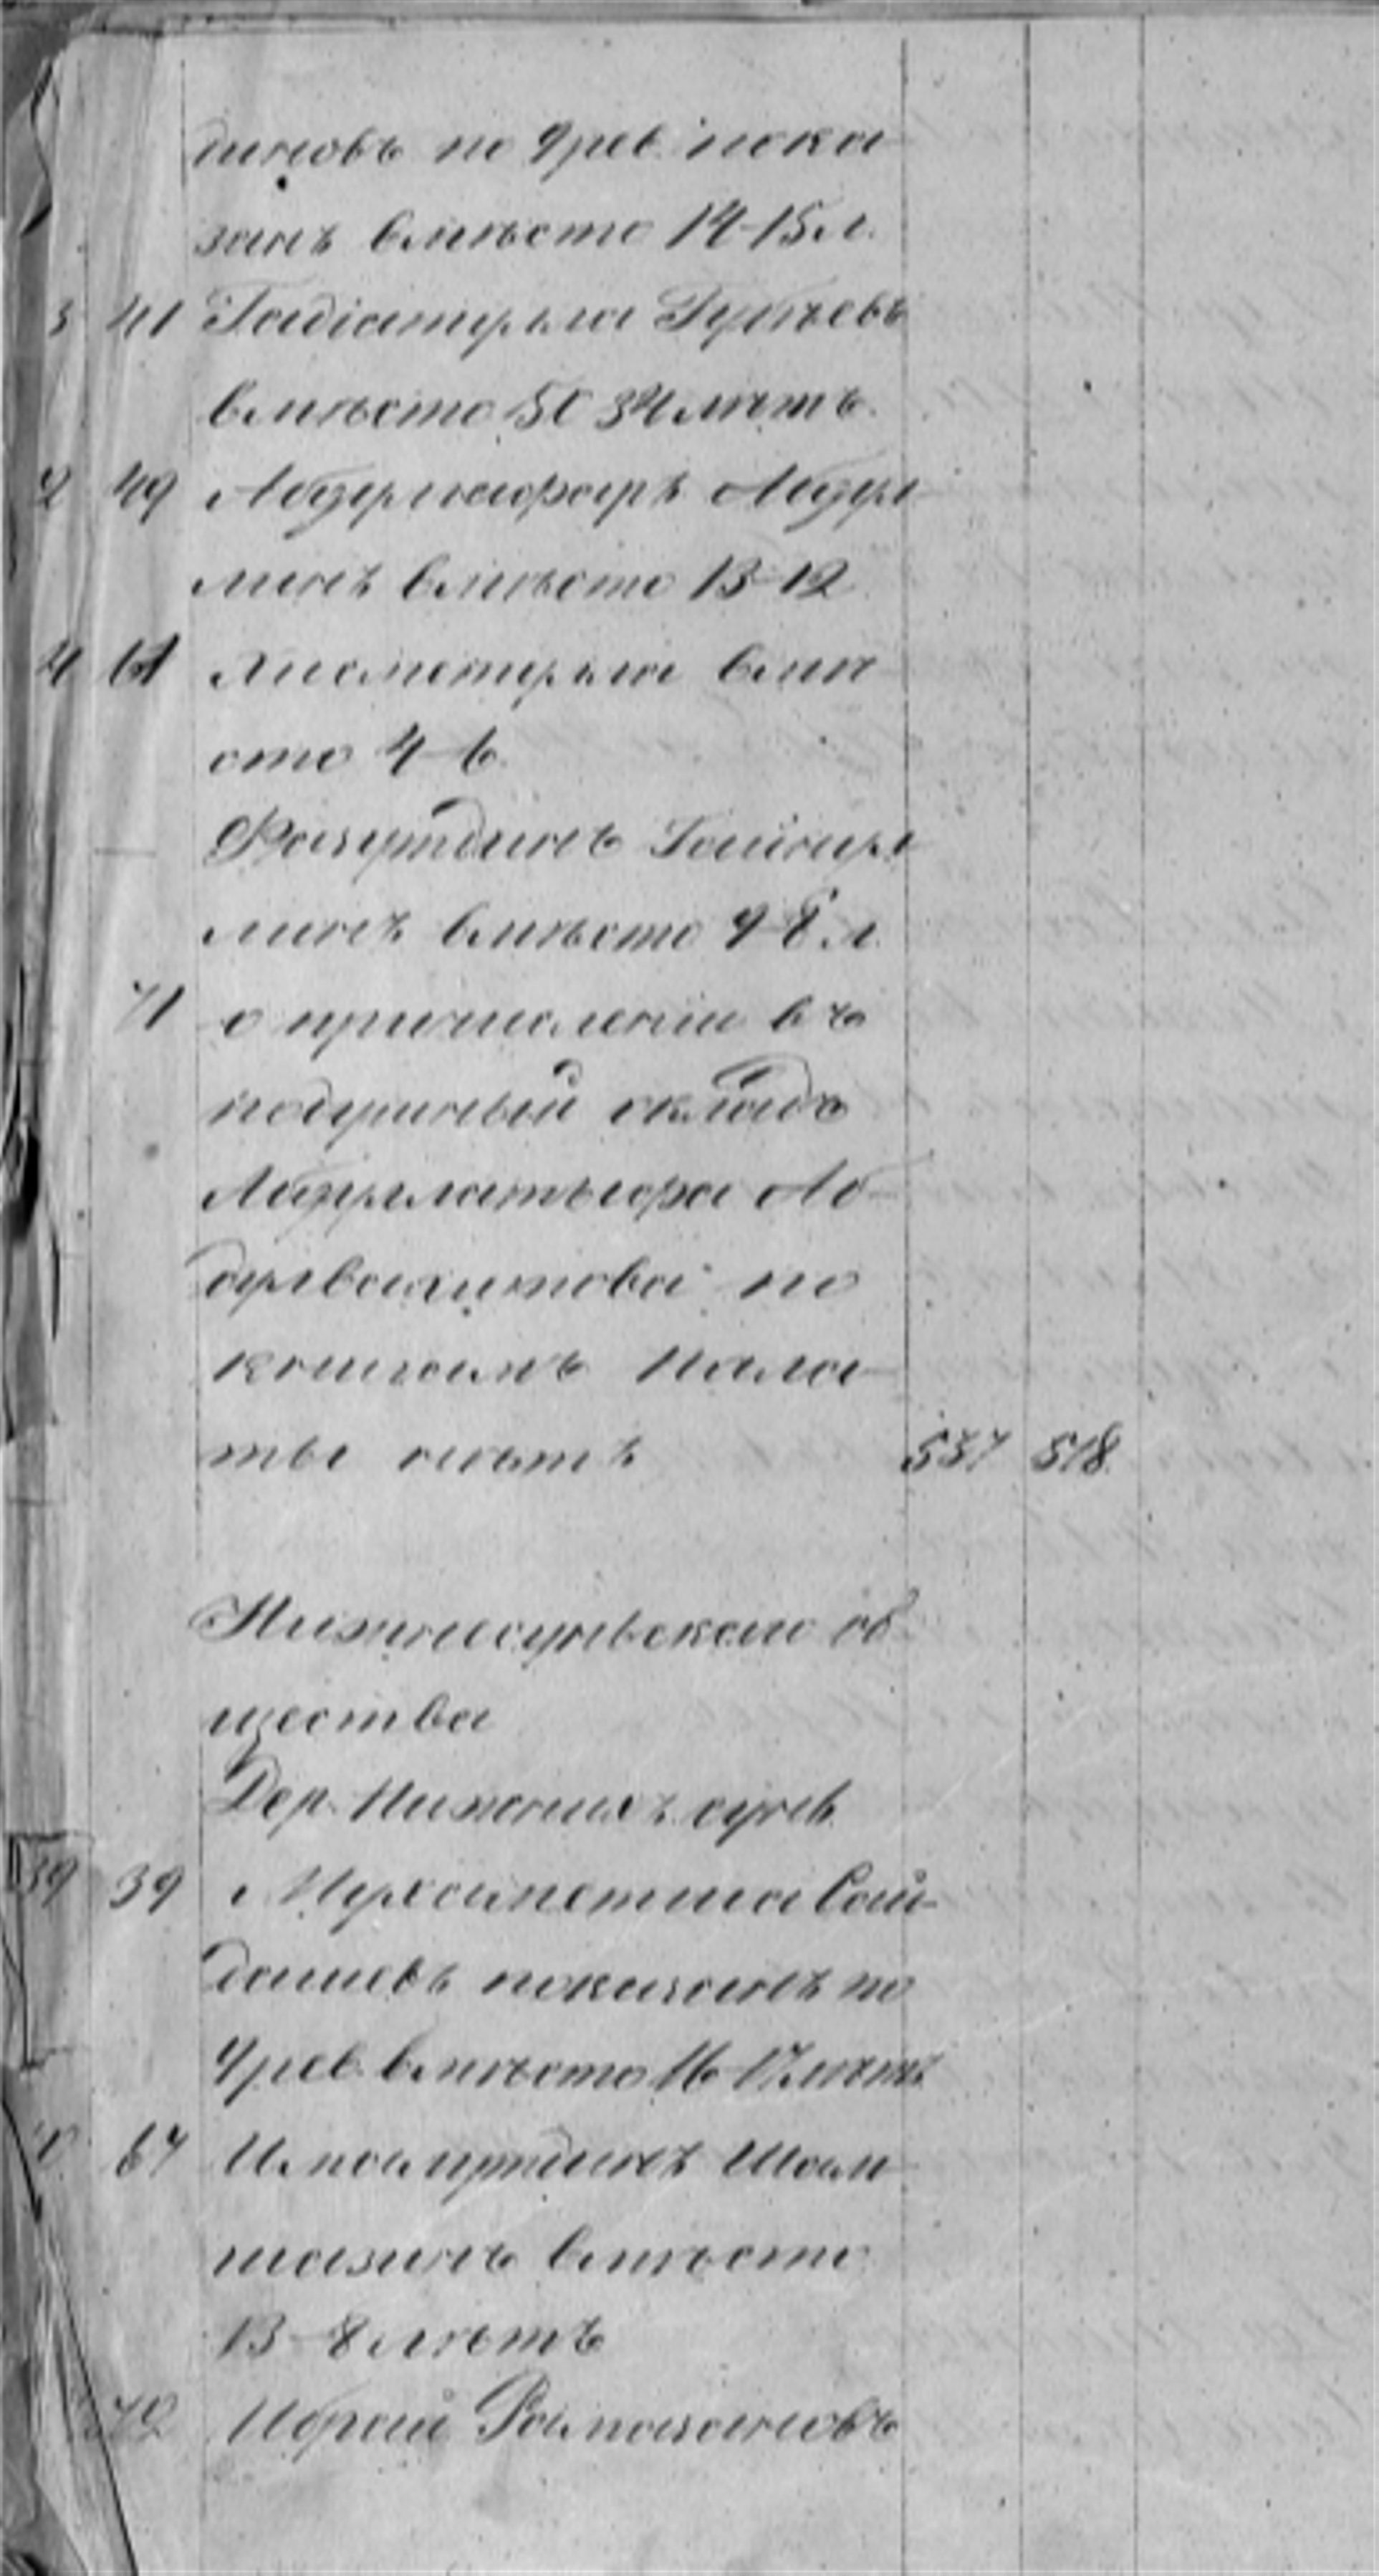 диновъ по 9 рев. пока
занъ вместо 14-15 л.
3 41 Гадіатулла Губеевъ
вмѣсто 50 34 летъ.
2 49 Абдулгафаръ Абдул
линъ вмѣсто 13-12
4 61 Хисметулла вмѣ
сто 4-6
Фазлутдинъ Гайнул
линъ вмѣсто 9-8 л.
71 о причисленіи въ
подушный окладъ
Абдуллатыфа Аб
дулвахитова по
книгамъ Пала-
ты нѣтъ 537 518
Нижнесунскаго об
щества
Дер. Нижнихъ
39 39 Мухаметша Сай-
дашевъ показанъ по
9 рев. вмѣсто 16 17 летъ
67 Шам
вмѣсто
13-8 летъ
72 Ибрай Рамазановъ